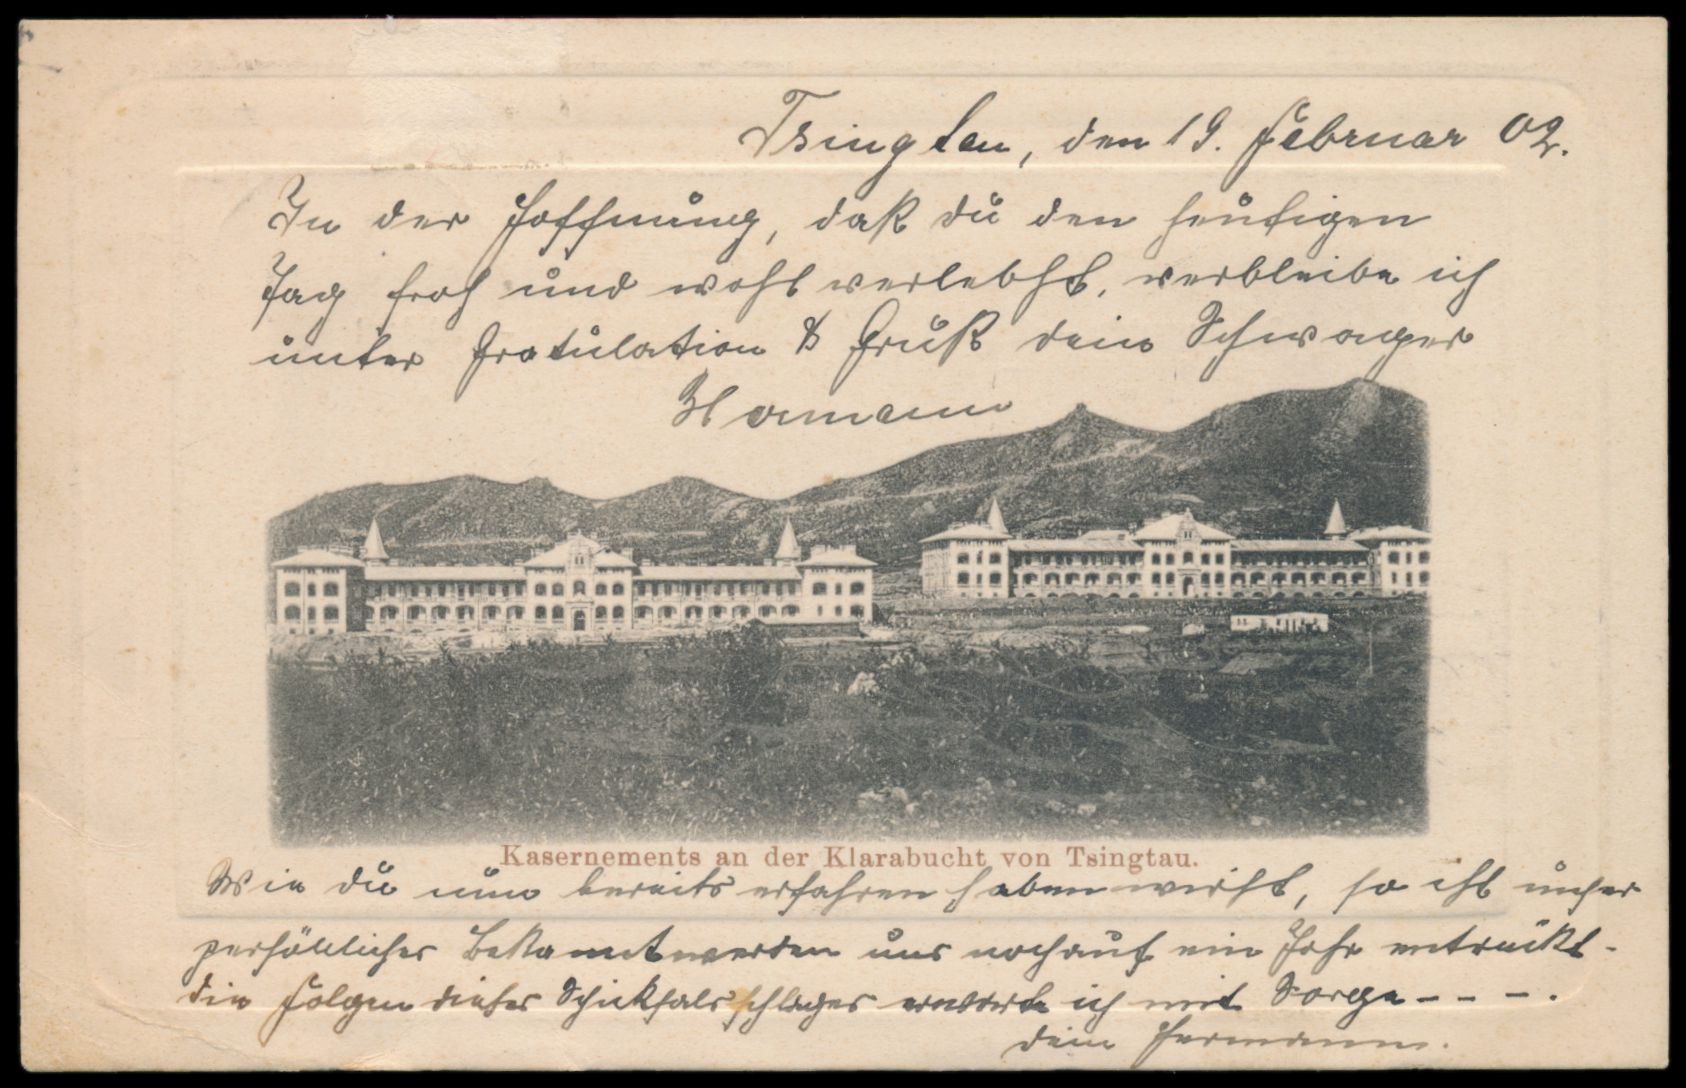 Tsingtau, den 19. Februar 02.
In der Hoffnung, daß du den heutigen
Tag froh und wohl verlebst, verbleibe ich
unter Gratulation & Gruß dein Schwager
Hermann
Kasernements an der Klarabucht von Tsingtau.
Wie du nun bereits erfahren haben wirst, so ist unser
persönliches Bekanntwerden uns noch auf ein Jahr entrückt -
die Folgen dieses Schicksalsschlages erwarte ich mit Sorge - - - .
dein Hermann.